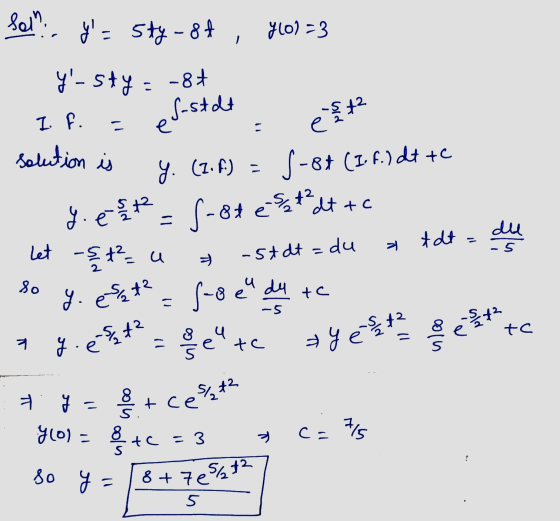 Solⁿ:- y' = 5ty - 8t , y(0) = 3
y' - 5ty = -8t
I.f. = e^{∫-5tdt} = e^{-5/2 t²}
Solution is y. (I.f.) = ∫-8t (I.f.) dt + c
y. e^{-5/2 t²} = ∫-8t e^{-5/2 t²} dt + c
Let -5/2 t² = u ⇒ -5tdt = du ⇒ tdt = du/-5
So y. e^{-5/2 t²} = ∫-8 e^u du/-5 + c
⇒ y. e^{-5/2 t²} = 8/5 e^u + c ⇒ y e^{-5/2 t²} = 8/5 e^{-5/2 t²} + c
⇒ y = 8/5 + c e^{5/2 t²}
y(0) = 8/5 + c = 3 ⇒ c = 7/5
So y = (8 + 7e^{5/2 t²})/5